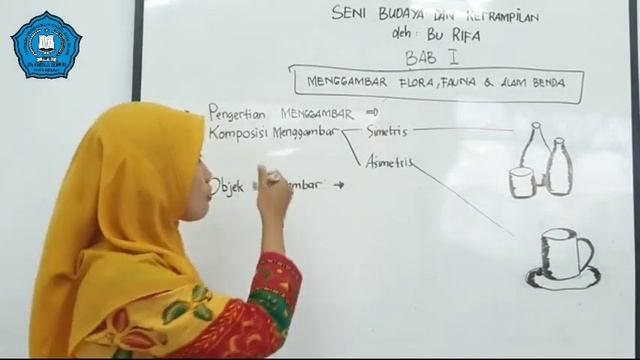 SENI BUDAYA DAN KETRAMPILAN
oleh : BU RIFA
BAB I
MENGGAMBAR FLORA, FAUNA & ALAM BENDA
Pengertian MENGGAMBAR ⇒
Komposisi Menggambar Simetris
Asimetris
Objek →